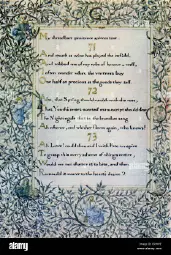 My threadbare penitence apieces tore
71
And much as wine has played the infidel,
And robbed me of my robe of honour - well,
I often wonder what the vintners buy
One half so precious as the goods they sell
72
Alas, that Spring should vanish with the rose,
That Youth's sweet-scented manuscript should close
The Nightingale that in the branches sang
Ah whence, and whither flown again, who knows!
73
Ah Love! could thou and I with Fate conspire
To grasp this sorry scheme of things entire,
Would we not shatter it to bits, and then
Remould it nearer to the heart's desire?
alamy